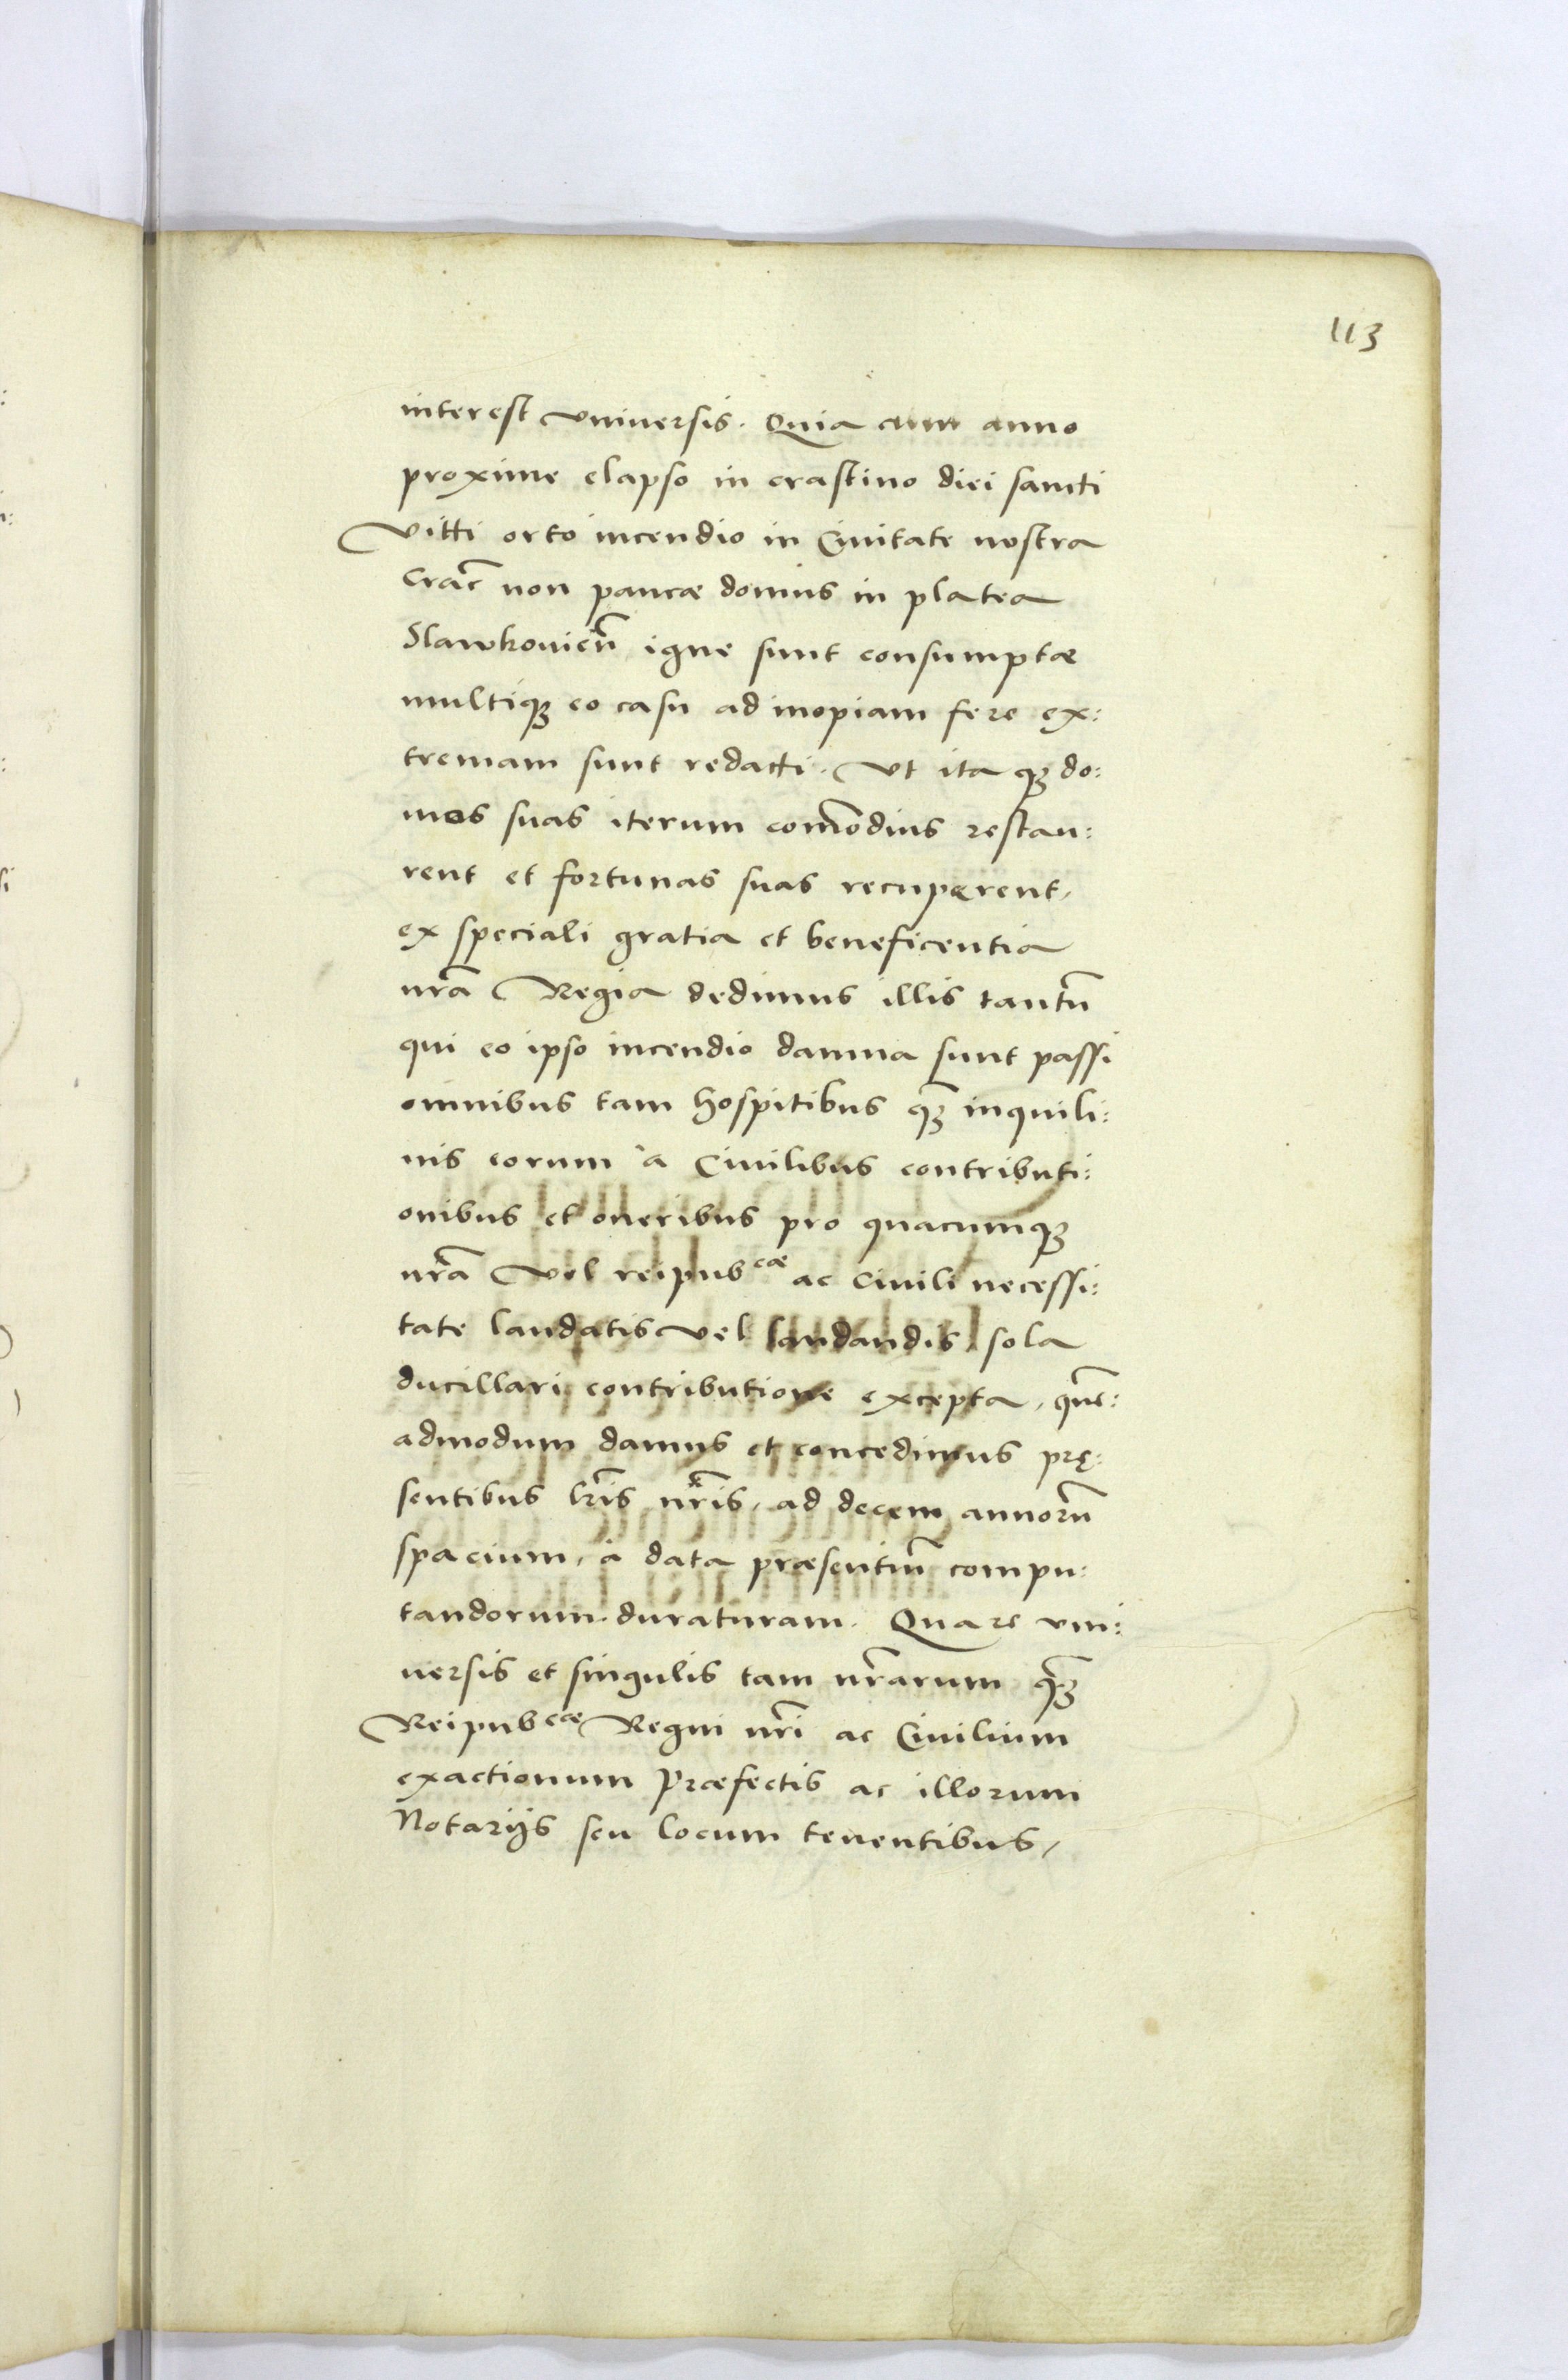 113
interest vniuersis. Quia cum anno
proxime elapso in crastino diei sancti
Vitti orto incendio in Ciuitate nostra
Crac̄ non paucæ domus in platea
Slawkouień igne sunt consumptæ
multiqꝫ eo casu ad inopiam fere ex:
tremam sunt redacti. Vt ita qꝫ do:
mos suas iterum com̄odius restau:
rent et fortunas suas recuperent,
ex speciali gratia et beneficentia
nr̄a Regia dedimus illis tantū
qui eo ipso incendio damna sunt passi
omnibus tam hospitibus qꝫ inquili:
nis eorum a Ciuilibus contributi:
onibus et oneribus pro quacumqꝫ
nr̄a Vel reipubcæ ac ciuili necessi:
tate laudatis vel laudandis, sola
ducillari contributione excepta, quē:
admodum damus et concedimus prę:
sentibus lr̄is nr̄is, ad decem annorū
spacium, à data præsentiū compu:
tandorum duraturam. Quare vni:
uersis et singulis tam nr̄arum qꝫ̄
Reipubcæ Regni nr̄i ac Ciuilium
exactionum Præfectis ac illorum
Notarijs seu locum tenentibus,